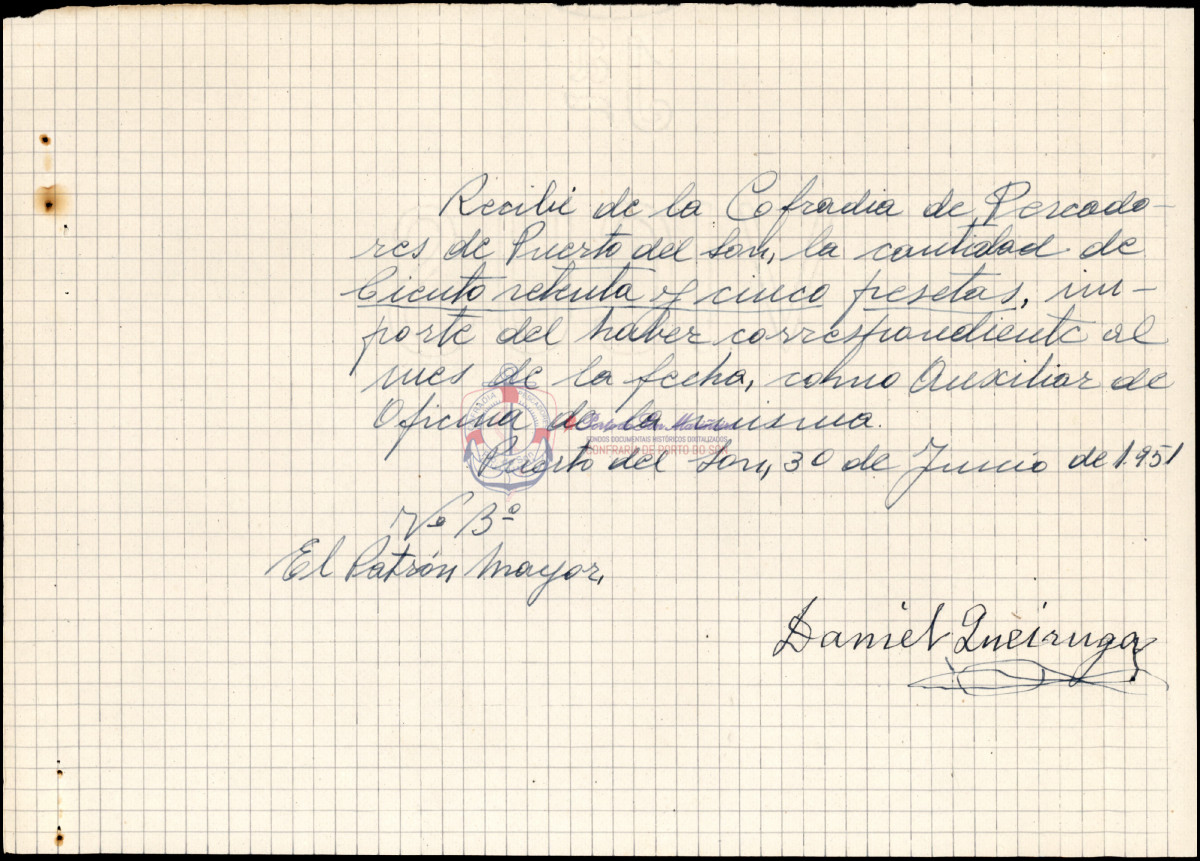 Recibí de la Cofradia de Pescado-
res de Puerto del Son, la cantidad de
Ciento setenta y cinco pesetas, im-
porte del haber correspondiente al
mes de la fecha, como Auxiliar de
Oficina de la misma.
FONDOS DOCUMENTAIS HISTÓRICOS DIXITALIZADOS
CONFRARÍA DE PORTO DO SON
Puerto del Son, 30 de Junio de 1.951
Vº Bº
El Patrón Mayor,
Daniel Queiruga